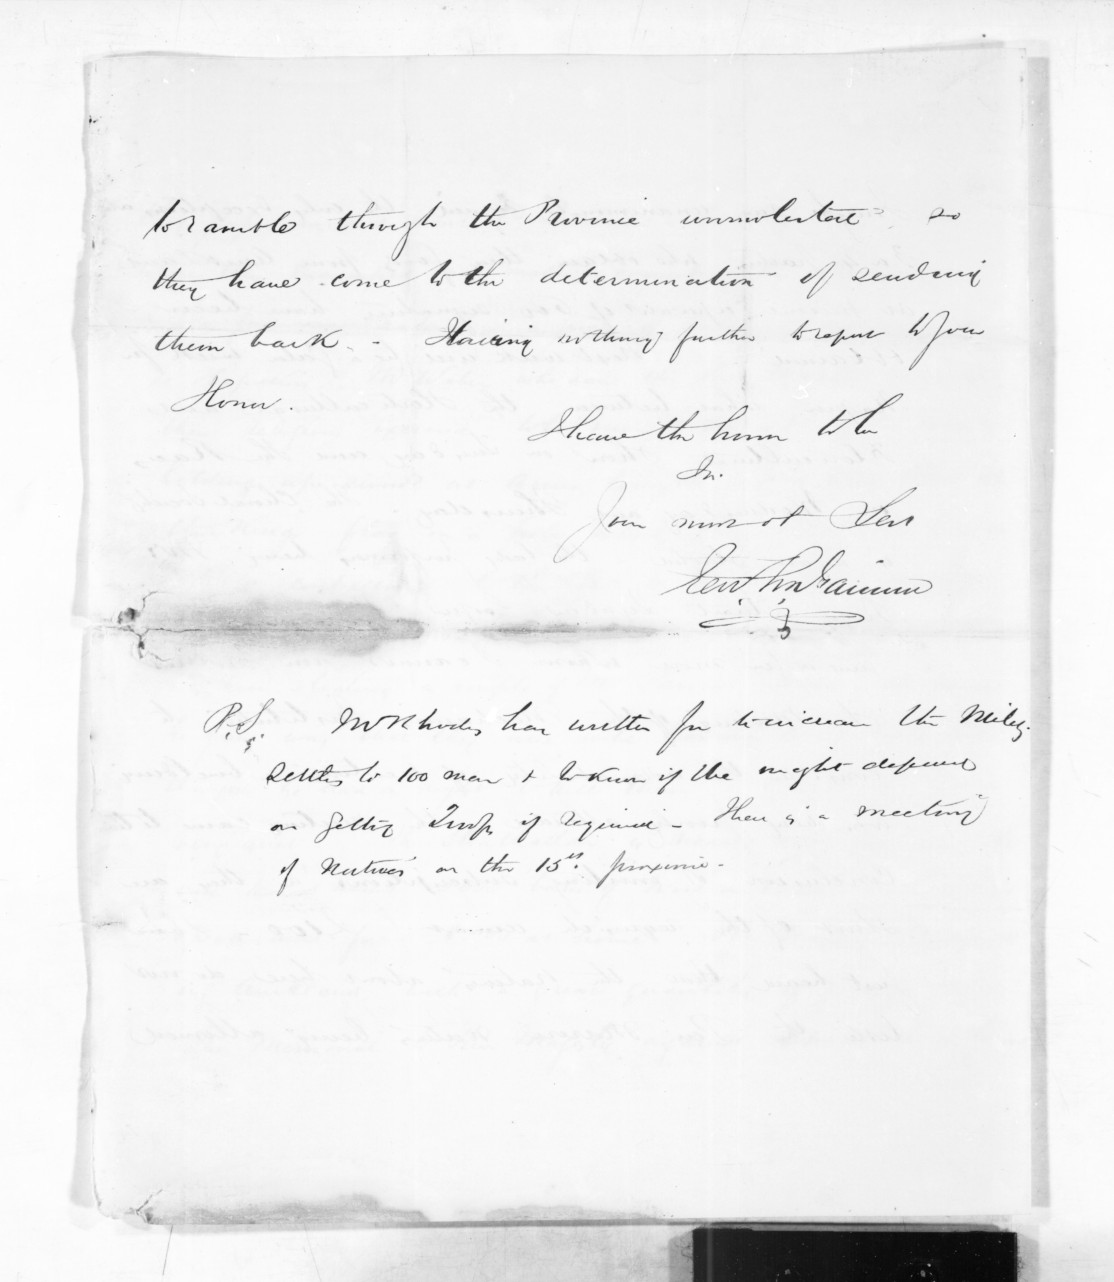 to ramble through the Province unmolested so
they have come to the determination of sending
them back. - Having nothing further to report to Your
Honor.
I have the honor to be
Sir.
Your most ob Serv
P.S. Mr Rhodes has written for to increase the Mility.
settlers to 100 men & to know if the might depend
on getting Troops if required - There is a meeting
of Natives on the 15th. proximo.